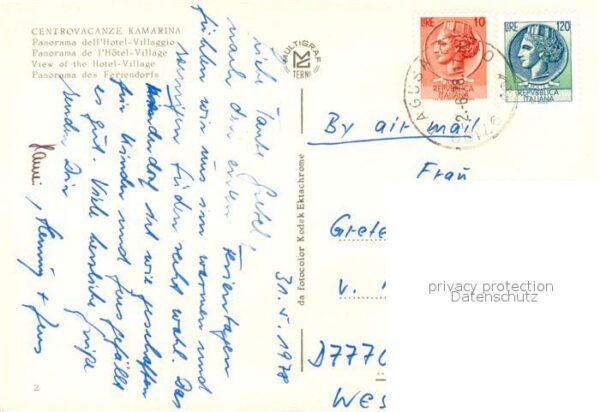 CENTROVACANZE KAMARINA
Panorama dell'Hotel-Villaggio
Panorama de l'Hôtel-Village
View of the Hotel-Village
Panorama des Feriendorfs
MULTIGRAF
TERNI
da fotocolor Kodak Ektachrome
2
LIRE 10
REPVBBLICA
ITALIANA
LIRE 120
REPVBBLICA
ITALIANA
RAGUSA
97100
31.5.1978
Liebe Tante Gretel!
nach den ersten Ferientagen
fühlen wir uns im warmen und
sonnigen Süden recht wohl. Das
Feriendorf ist wie geschaffen
für Kinder und Jens gefällt
es gut. Viele herzliche Grüße
senden Dir
Henning + Jens
By air mail
Frau
Grete
v.
D777
Wes
privacy protection
Datenschutz